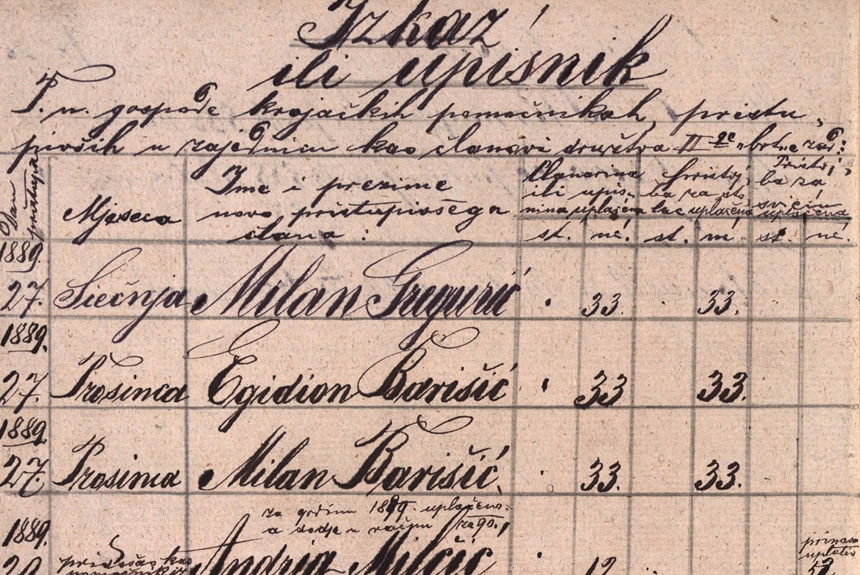 Izkaz
ili upisnik
T. n. gospode krojačkih pomoćnikah, pristu-
pivših u zajednicu kao članovi družtva II ge obrtne
Dan pristupa
Mjeseca
Ime i prezime
novo pristupivšega
člana:
Članarina
ili upis-
nina uplaćena
st. nč.
Pristoj-
ba za
uplaćena
st. nč.
Pristoj-
ba za
uplaćena
st. nč.
1889.
27. Siečnja Milan Gregurić . 33. . 33.
1889.
27. Prosinca Egidion Barišić . 33 33.
1889.
27. Prosinca Milan Barišić . 33. 33.
za godinu 1889. uplaćeno.
a dodje u račun za 90.
1889.
Andrija Milčić . 12